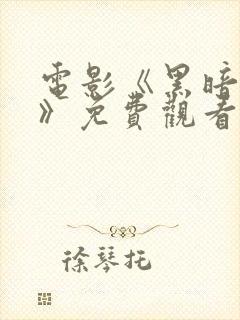 電影《黑暗
》免費觀看
徐琴托